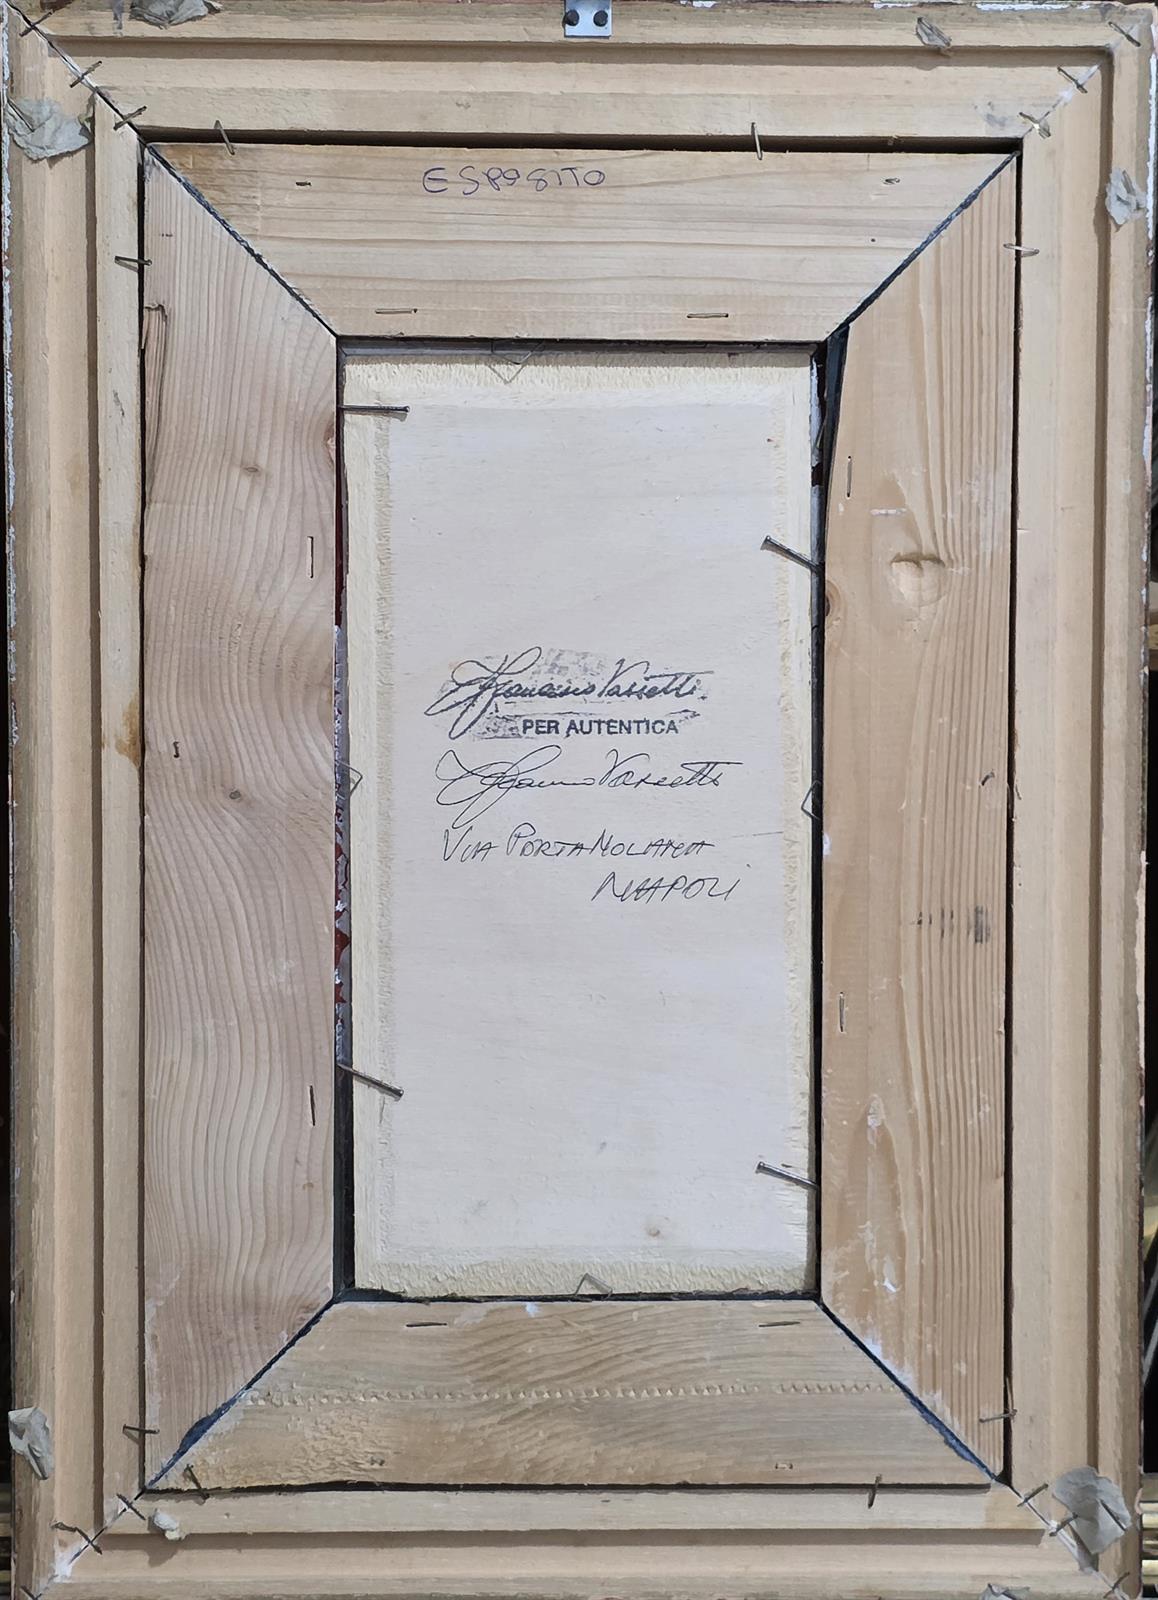 ESPOSITO
Vassetti
PER AUTENTICA
Vassetti
VIA PORTA NOLANA
NAPOLI